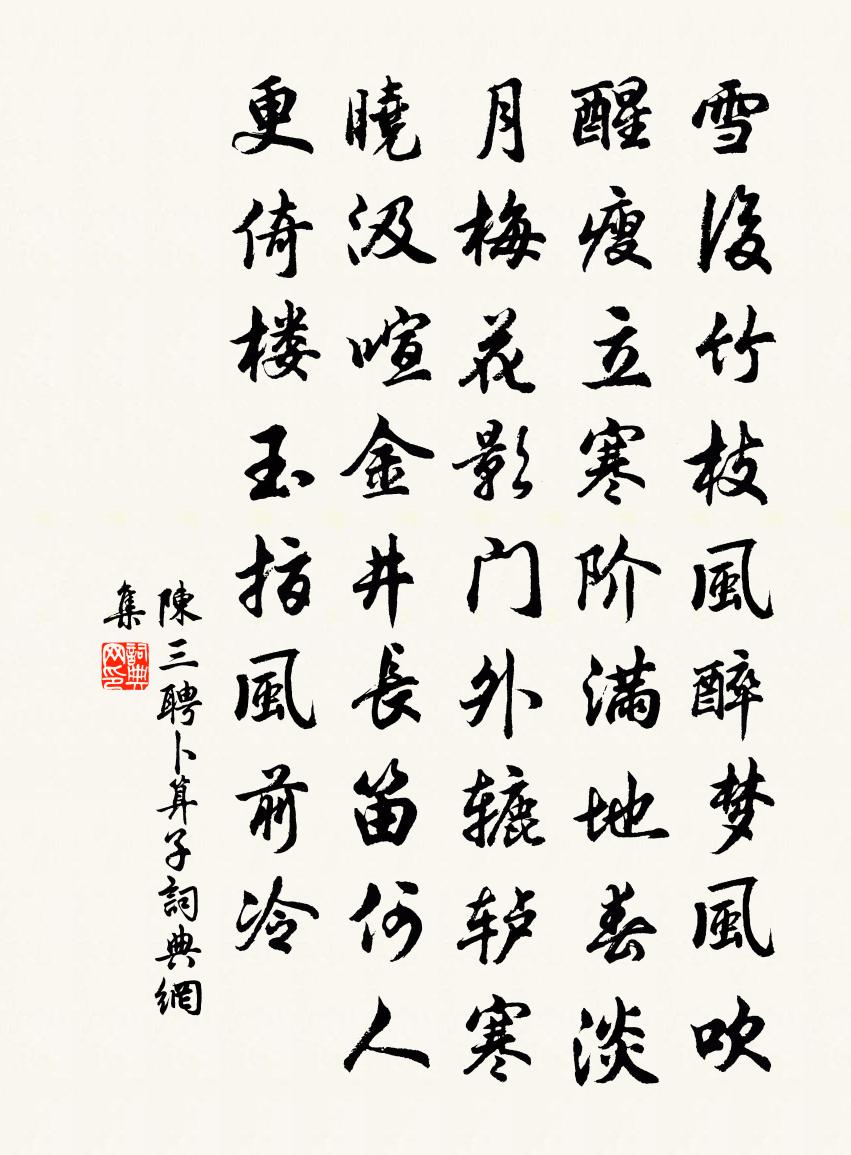 雪後竹枝風醉梦風吹
醒瘦立寒阶滿地春淡
月梅花影门外辘轳寒
曉汲喧金井長笛何人
更倚楼玉指風前冷
陳三聘卜算子詞典網
集
詞典网印